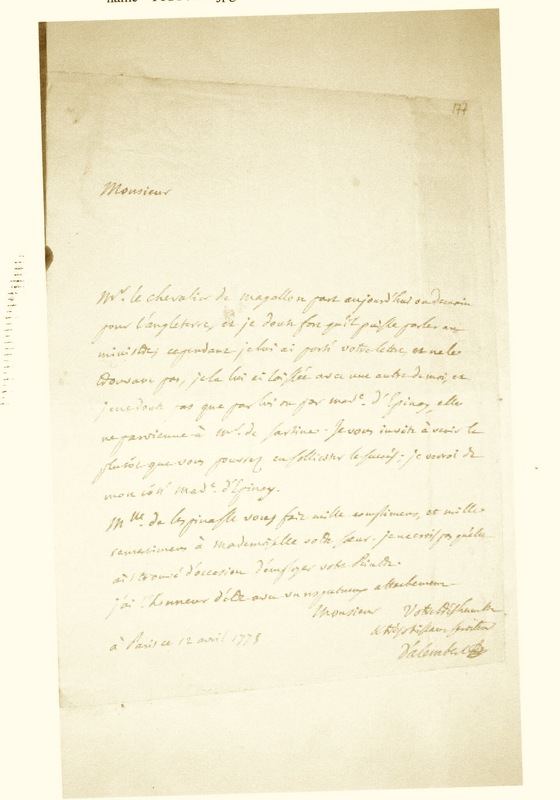 177
Monsieur
Mr. le chevalier de magallon part aujourd'hui ou demain
pour l'angleterre, et je doute fort qu'il puisse parler au
ministre, cependant je lui ai porté votre lettre, et ne le
trouvant pas, je la lui ai laissée avec une autre de moi, et
je ne doute pas que par lui ou par made. d'Epinay, elle
ne parvienne à mr. de Sartine. Je vous invite à venir le
plutôt que vous pourrez en solliciter le succès. je verrai de
mon côté made. d'Epinay.
Mlle. de lespinasse vous fait mille complimens, et mille
remercimens à mademoiselle votre sœur. je ne crois pas qu'elle
ait trouvé d'occasion d'employer votre
j'ai l'honneur d'être avec un respectueux attachement
Monsieur Votre très humble
& très obéissant serviteur
D'alembert
à Paris ce 12 avril 1775